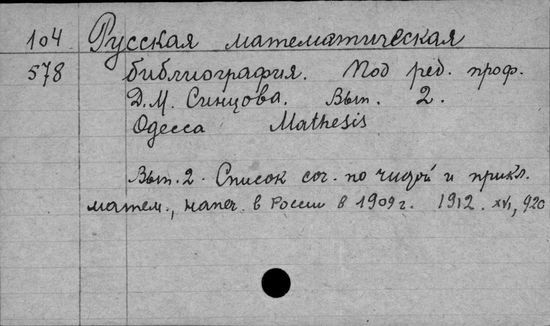 104 Русская математическая
578 библиография. Под ред. проф.
Д.М. Синцова. Вып. 2.
Одесса Mathesis
Вып. 2. Список соч. по чистой и прикл.
матем., напеч. в России в 1909 г. 1912. XVI, 92с